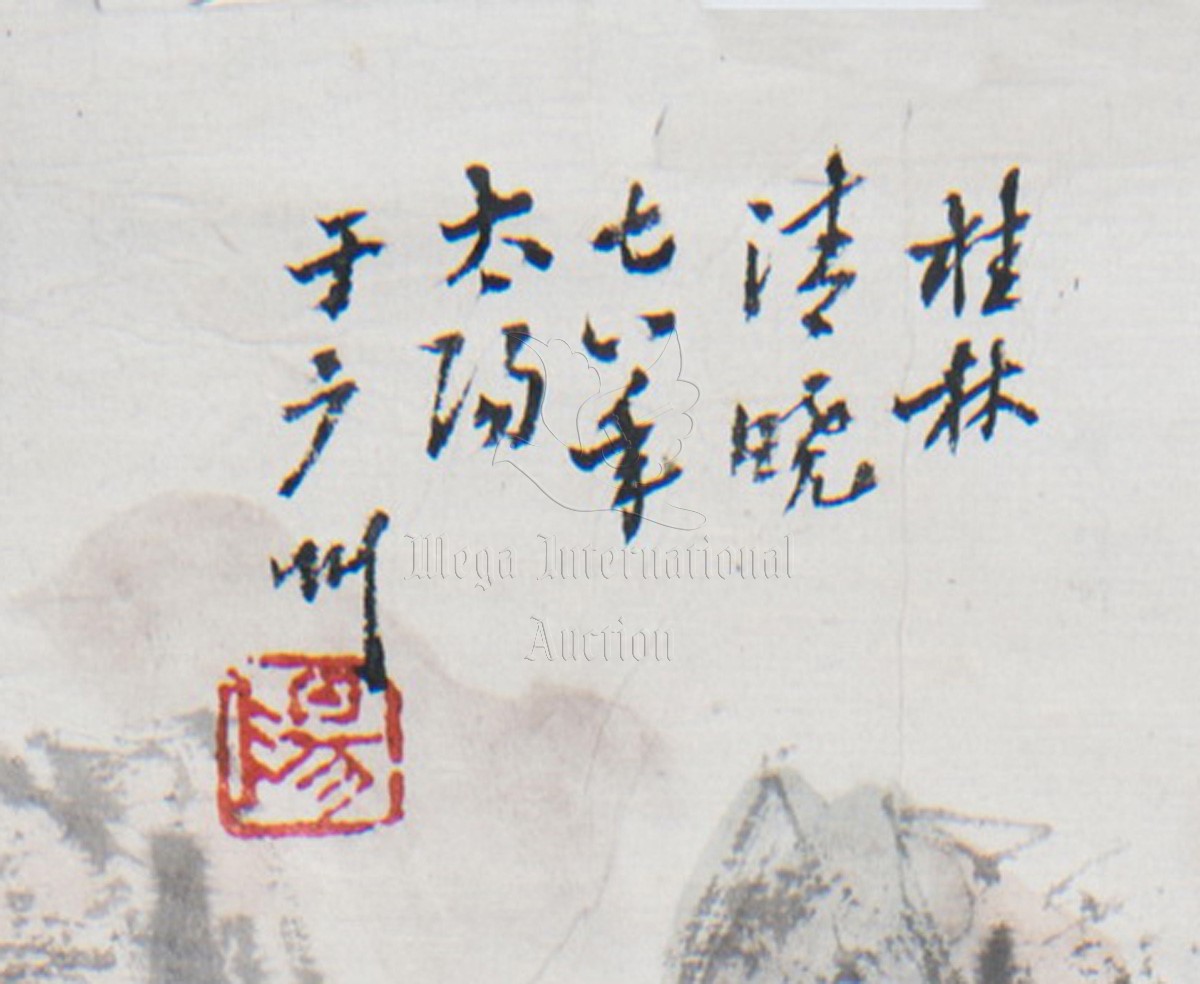 桂林
清晓
七八年
太阳
于广州
阳
Mega International
Auction